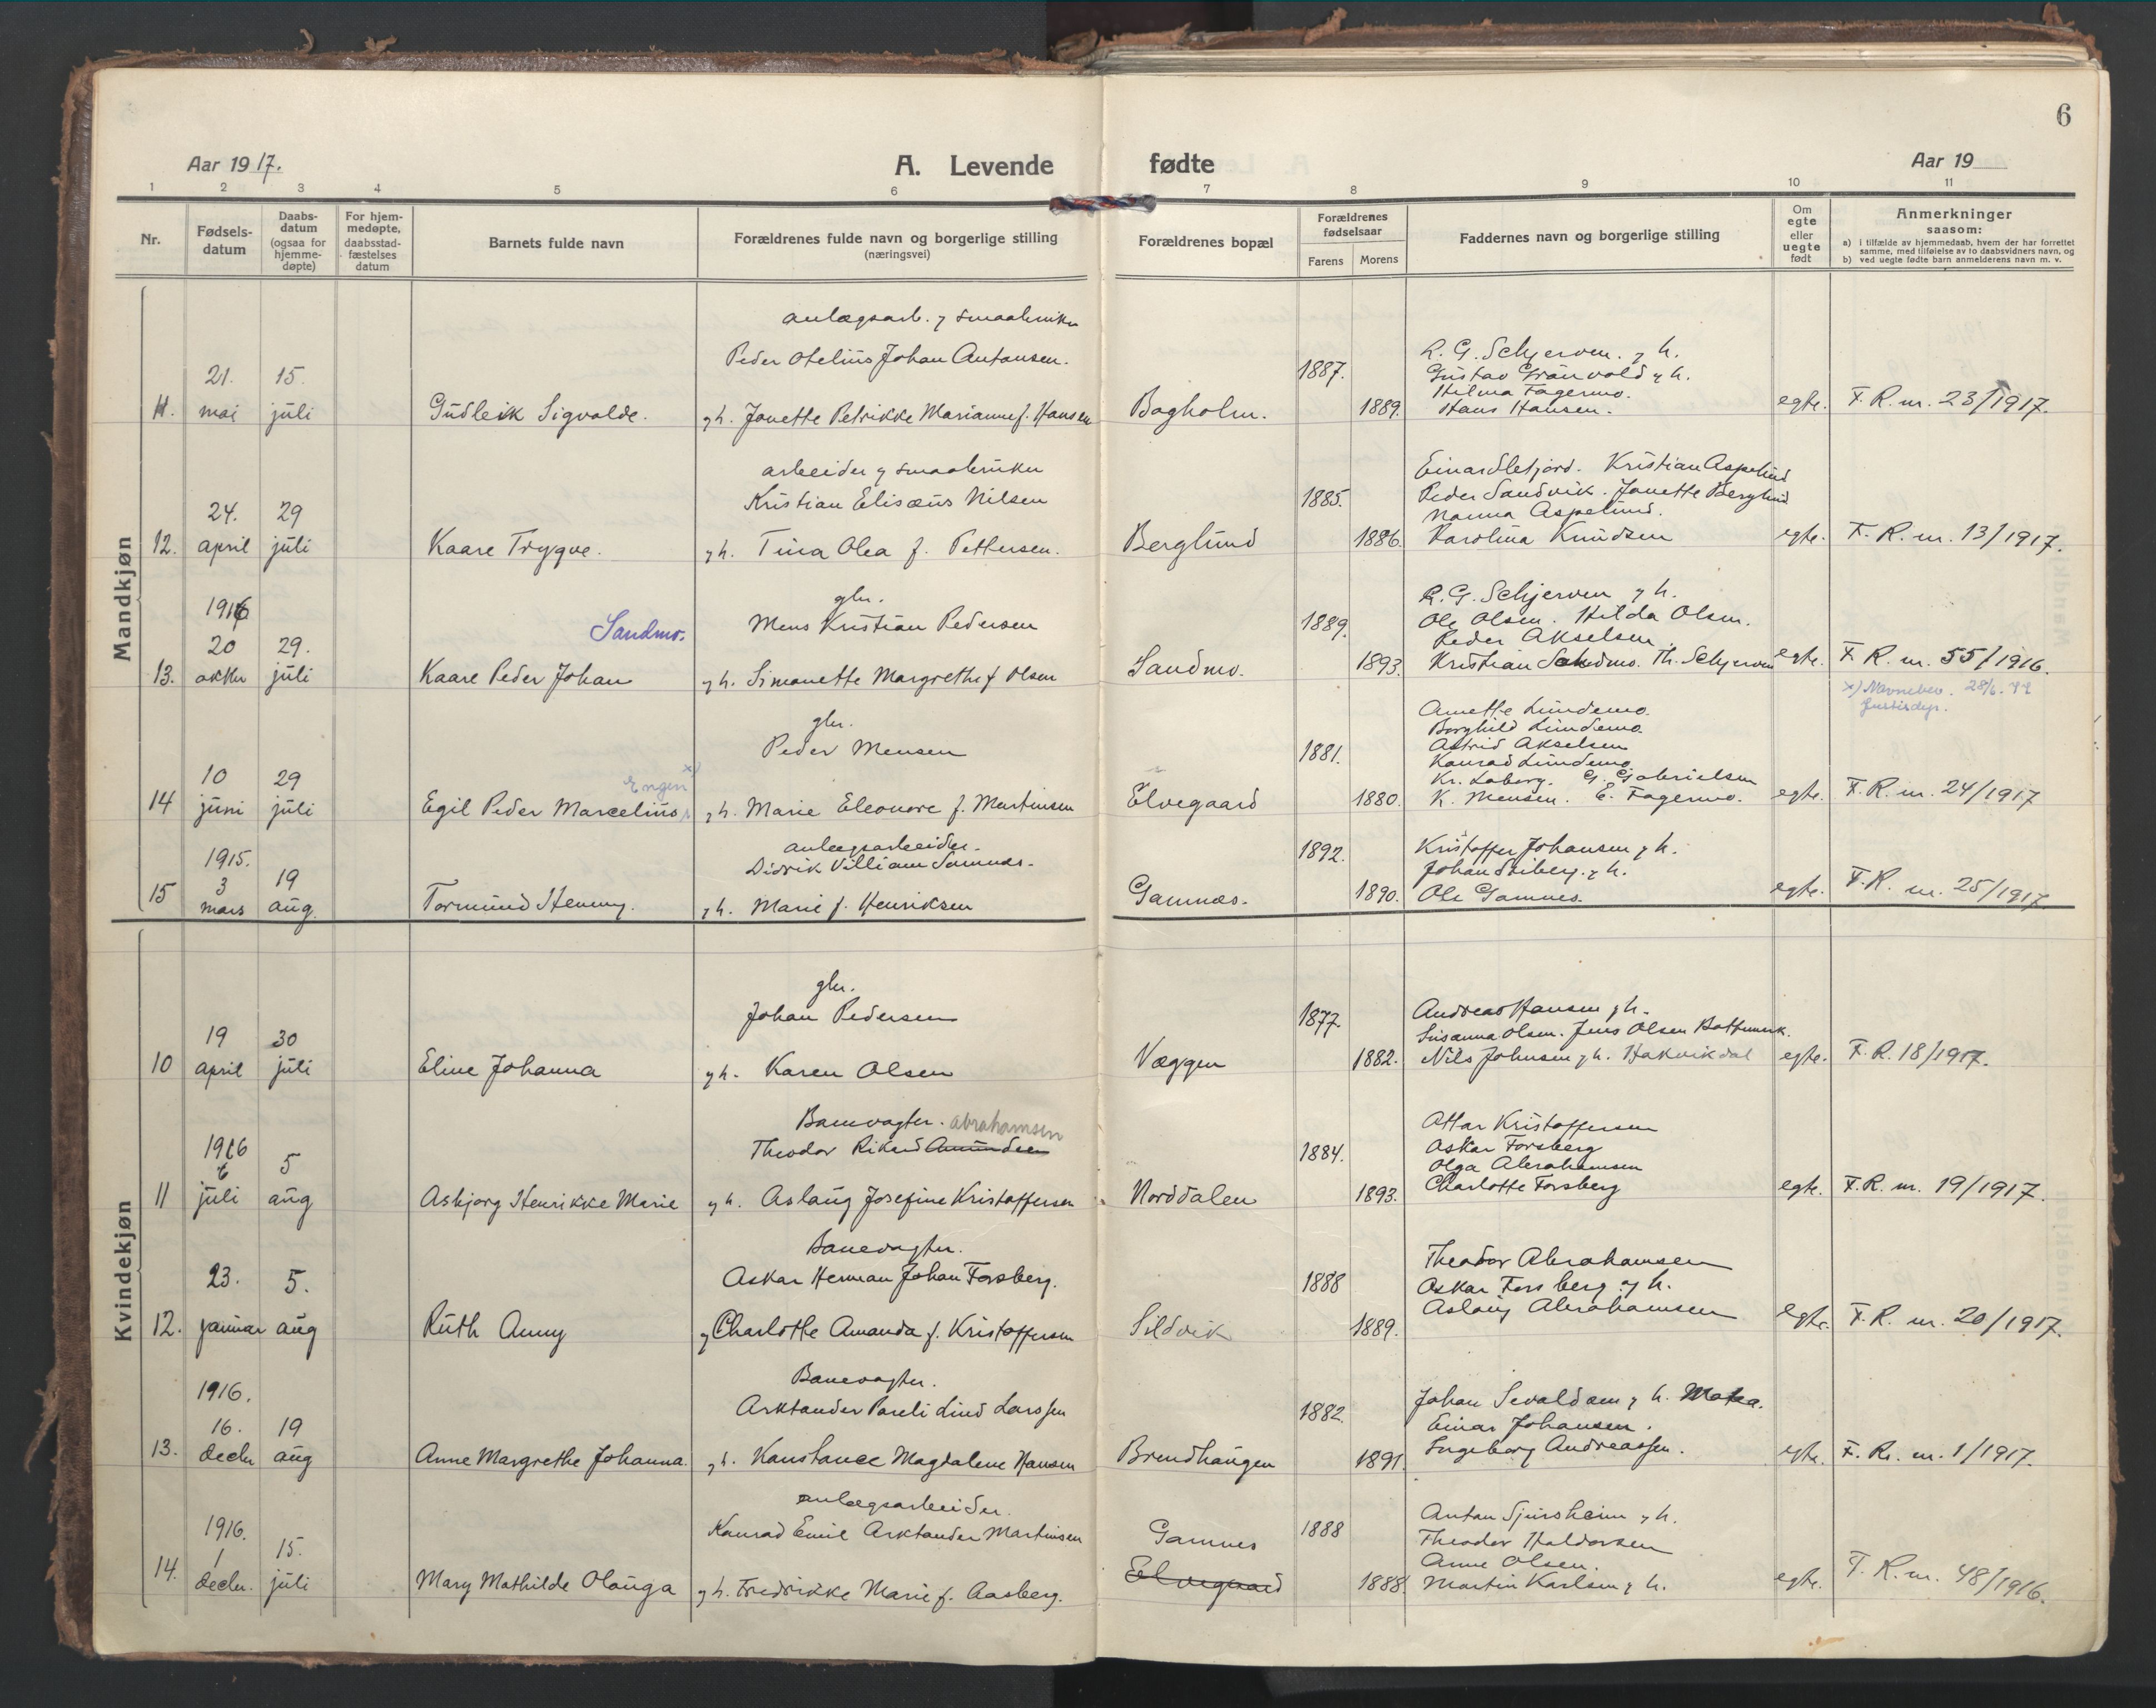 6
Aar 1917.
A. Levende fødte
Aar 19
1 2 3 4 5 6 7 8 9 10 11
Nr.
Fødselsdatum
Daabsdatum (ogsaa for hjemmedøpte)
For hjemmedøpte, daabsstadfæstelses datum
Barnets fulde navn
Forældrenes fulde navn og borgerlige stilling (næringsvei)
Forældrenes bopæl
Forældrenes fødselsaar
Farens Morens
Faddernes navn og borgerlige stilling
Om egte eller uegte født
Anmerkninger saasom:
a) i tilfælde av hjemmedaab, hvem der har forrettet samme, med tilføielse av to daabsvidners navn, og
b) ved uegte fødte barn anmelderens navn m. v.
Mandkjøn
11. 21. mai 15. juli
Gudleik Sigvalde.
anlægsarb. og smaabruker
Peder Otelius Johan Antonsen.
og h. Janette Petrikke Marianne f. Hansen
Bogholm.
1887. 1889.
R. G. Schjerven. og h.
Gustav Grönvold og h.
Hilma Fagermo.
Hans Hansen.
egte. F. R. nr. 23/1917.
12. 24. april 29 juli
Kaare Trygve.
arbeider og smaabruker
Kristian Elisæus Nilsen
og h. Tina Olea f. Pettersen.
Berglund
1885. 1886.
Einar Sletjord. Kristian Aspelund
Peder Sandvik. Janette Berglund
Nanna Aspelund.
Karolina Knudsen
egte. F. R. nr. 13/1917.
13. 1916 20 oktbr 29. juli
Kaare Peder Johan
Sandmo.
gbr.
Mons Kristian Pedersen
og h. Simonette Margrethe f Olsen
Sandmo.
1889. 1893.
R. G. Schjerven og h.
Ole Olsen. Hilda Olsen.
Peder Akselsen.
Kristian Sandmo. Th. Schjerven
egte. F. R. nr. 55/1916.
x) Navnebev. 28/6.
Justisdep.
14 10 juni 29 juli
Egil Peder Marcelius
Engen x)
gbr.
Peder Mensen
og h. Marie Eleonore f. Martinsen
Elvegaard
1881. 1880.
Anette Lundemo.
Borghild Lundemo.
Astrid Akselsen
Konrad Lundemo
Kr. Laberg. G. Gabrielsen
K. Mensen. E. Fagermo.
egte. F. R. nr. 24/1917
15 1915. 3 mars 19 aug.
Tormund Henny.
anlægsarbeider.
Didrik Villiam Gamnæs.
og h. Marie f. Henriksen
Gamnæs.
1892. 1890.
Kristoffer Johansen og h.
Johan Stiberg. og h.
Ole Gamnes.
egte. F. R. nr. 25/1917.
Kvindekjøn
10 19 april 30 juli
Eline Johanna
gbr.
Johan Pedersen
og h. Karen Olsen
Væggen
1877. 1882.
Andreas Hansen og h.
Susanna Olsen. Jens Olsen Botsmark.
Nils Johnsen og h. Hakvikdal
egte. F. R. 18/1917.
11 1916 6 juli 5 aug
Asbjørg Henrikke Marie
Banevogter. Abrahamsen
Theodor Rikard Amundsen
og h. Aslaug Josefine Kristoffersen
Norddalen
1884. 1893.
Ottar Kristoffersen
Oskar Forsberg
Olga Abrahamsen
Charlotte Forsberg
egte. F. R. nr. 19/1917.
12. 23. januar 5. aug
Ruth Anny
Banevogter.
Oskar Herman Johan Forsberg.
og Charlotte Amanda f. Kristoffersen
Sildvik
1888 1889.
Theodor Abrahamsen
Oskar Forsberg og h.
Aslaug Abrahamsen
egte. F. R. nr. 20/1917.
13. 1916. 16. decbr 19 aug
Anne Margrethe Johanna.
Banevogter.
Arktander Pareli Lind Larssen
og h. Konstance Magdalene Hansen
Brendhaugen
1882. 1891.
Johan Sevaldsen og h.
Einar Johansen.
Ingeborg Andreassen.
egte. F. R. nr. 1/1917.
14. 1916. 1 decbr. 15. juli
Mary Mathilde Olauga
anlægsarbeider.
Konrad Emil Arktander Martinsen
og h. Fredrikke Marie f. Aasberg.
Gamnes
Elvegaard
1888 1888.
Anton Sjursheim og h.
Theodor Haldorsen
Anne Olsen.
Martin Karlsen og h.
egte. F. R. nr. 48/1916.